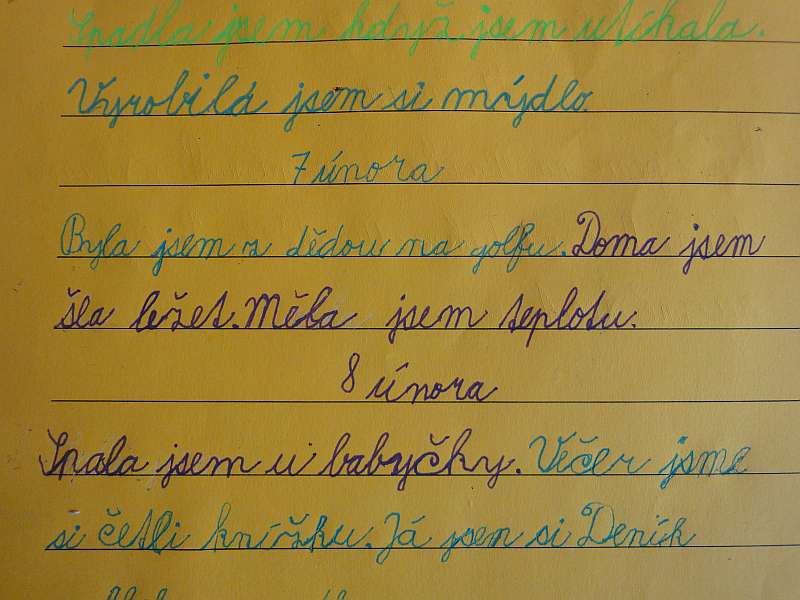 Spadla jsem když jsem utíkala.
Vyrobila jsem si mýdlo
7 února
Byla jsem z dědou na golfu. Doma jsem
šla ležet. Měla jsem teplotu.
8 února
Spala jsem u babyčky. Večer jsme
si četli knížku. Já jsem si Deník